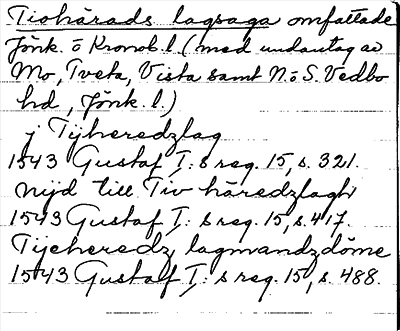 Tiohärads lagsaga omfattade
Jönk. o Kronob. l. (med undantag av
Mo, Tveta, Vista samt N. o S. Vedbo
hd, Jönk. l.)
j Tijheredzlag
1543 Gustaf I:s reg. 15, s. 321.
nijd till Tiv häredzlagh
1543 Gustaf I:s reg. 15, s. 417.
Tijeheredz lagmandzdöme
1543 Gustaf I:s reg. 15, s. 488.